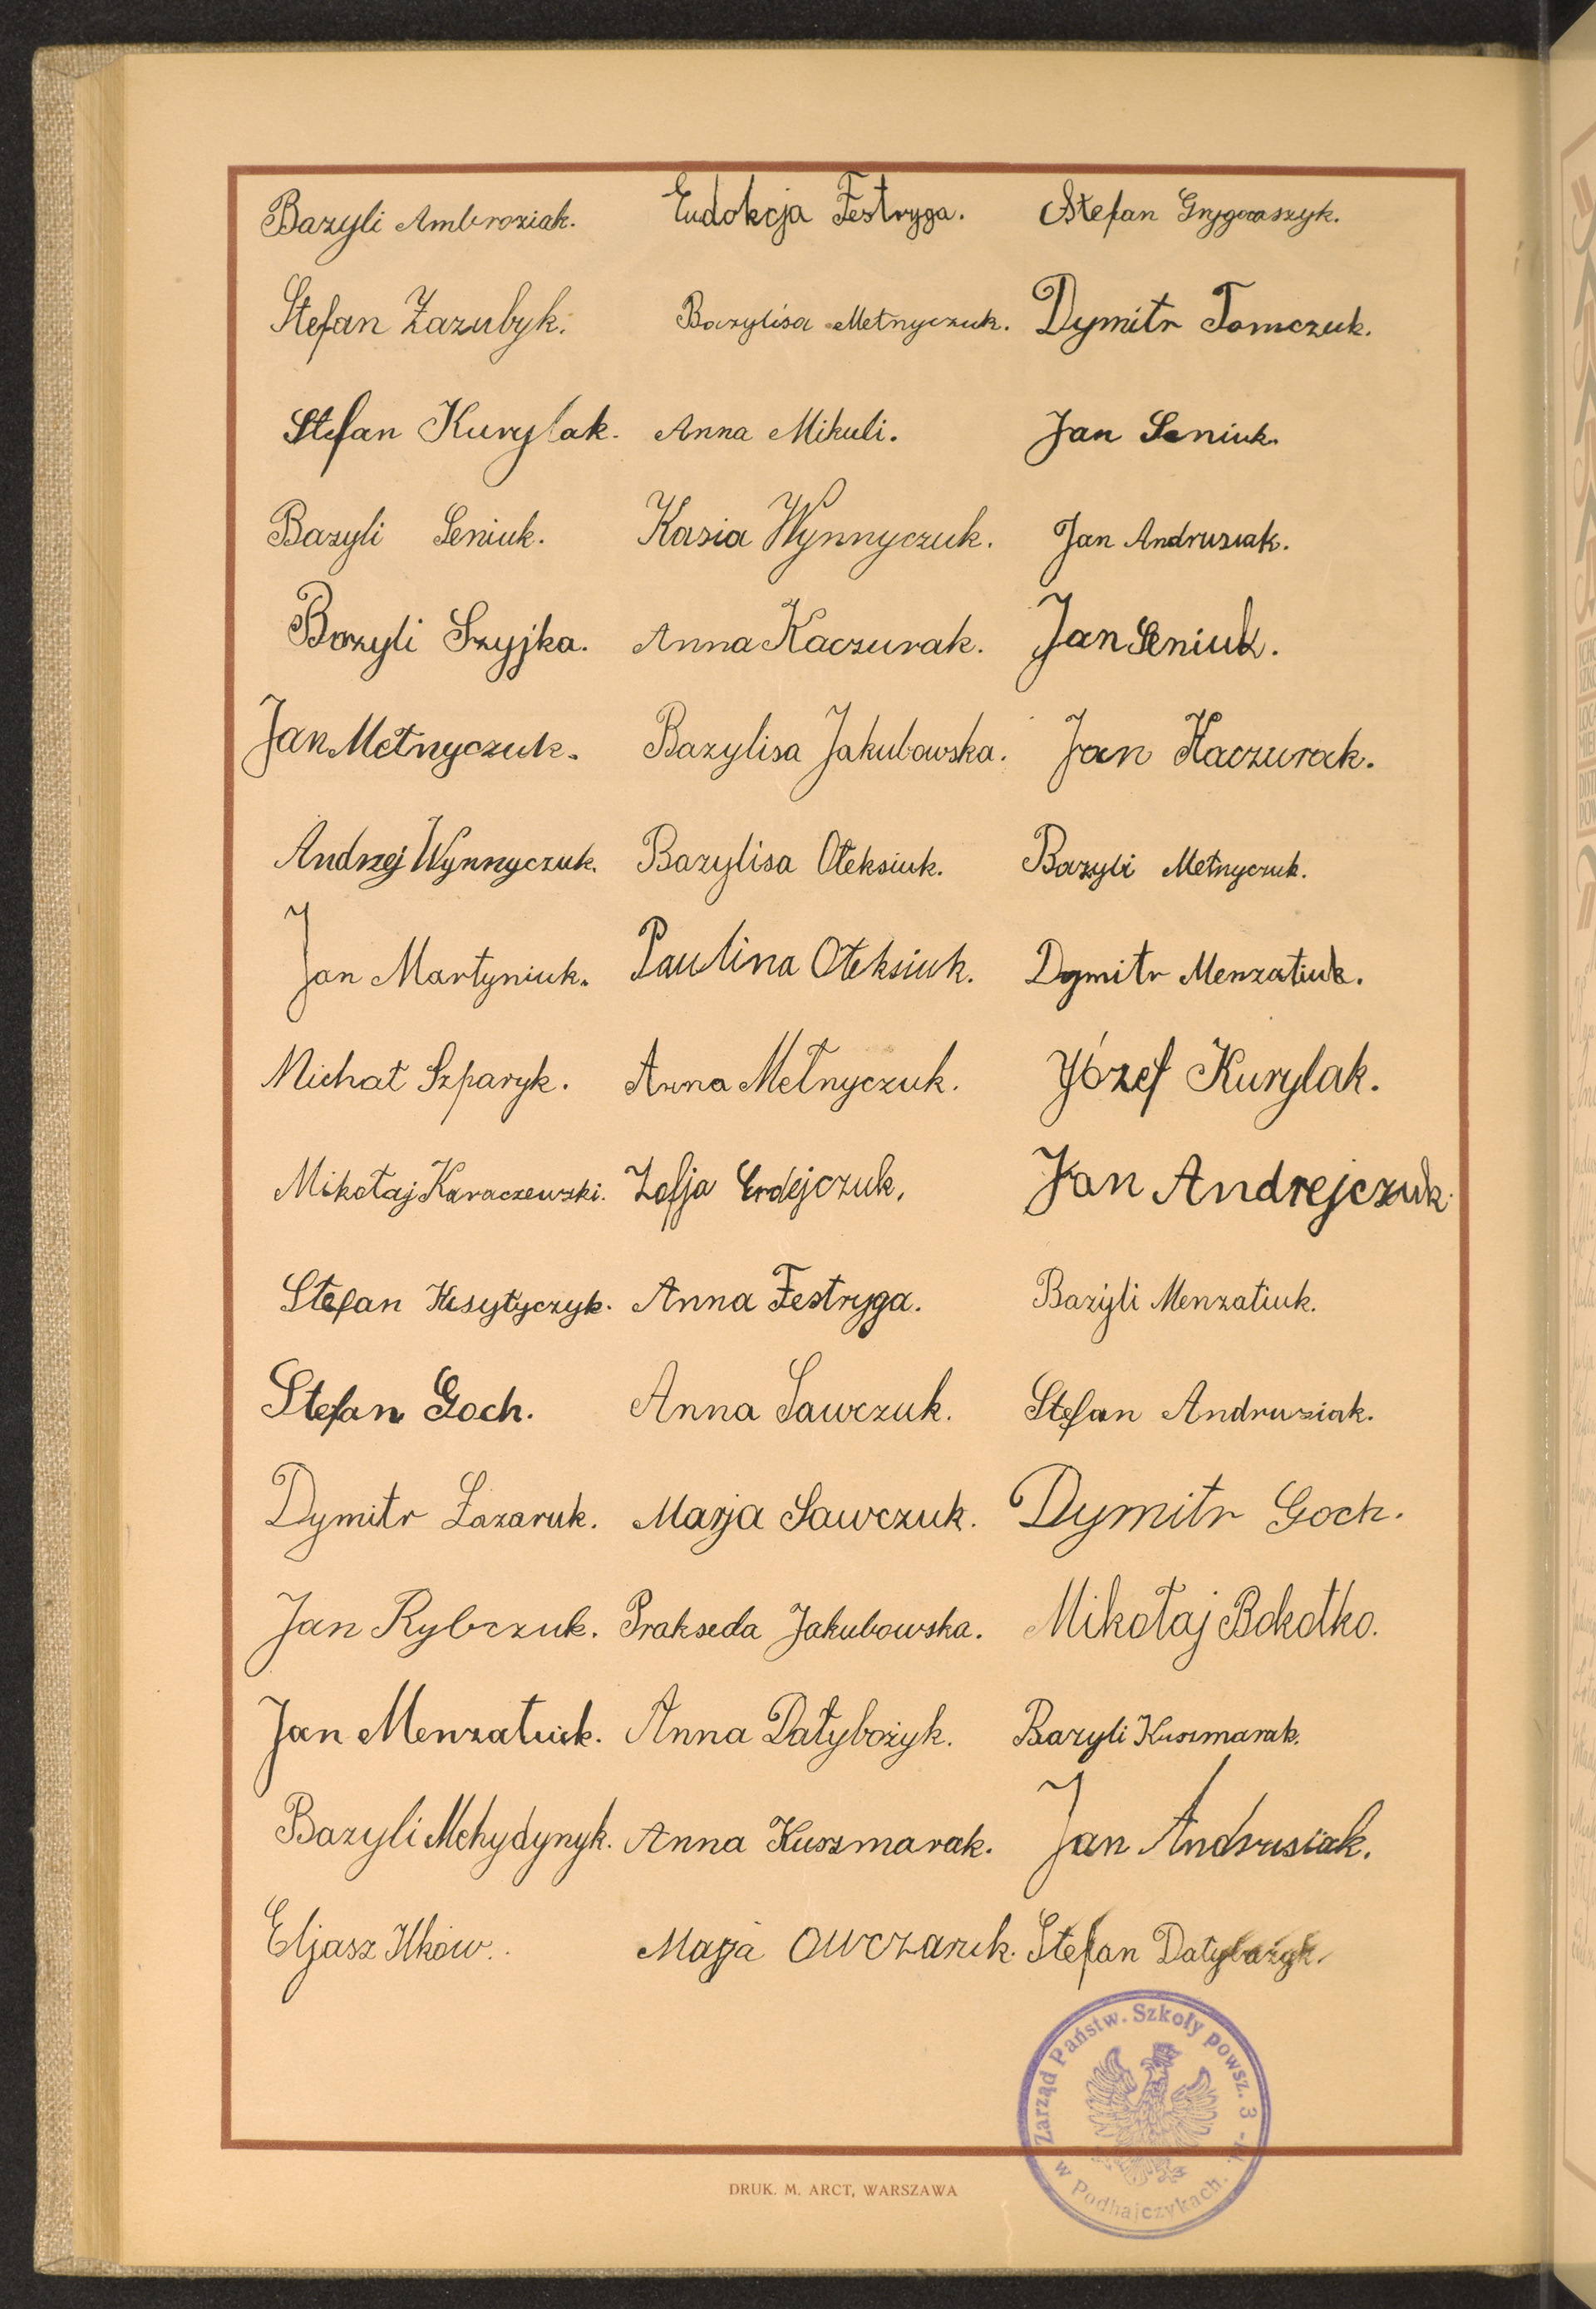 Bazyli Ambroziak. Eudokja Festryga. Stefan Grygoraszyk.
Stefan Zazubyk. Bazylisa Mełnyczuk. Dymitr Tomczuk.
Stefan Kurylak. Anna Mikuli. Jan Seniuk.
Bazyli Seniuk. Kasia Wynnyczuk. Jan Andrusiak.
Bazyli Szyjka. Anna Kaczurak. Jan Seniuk.
Jan Mełnyczuk. Bazylisa Jakubowska. Jan Kaczurak.
Andrzej Wynnyczuk. Bazylisa Ołeksiuk. Bazyli Mełnyczuk.
Jan Martyniuk. Paulina Ołeksiuk. Dymitr Menzatiuk.
Michał Szparyk. Anna Mełnyczuk. Józef Kurylak.
Mikołaj Karaczewski. Zofja Erdejczuk. Jan Andrejczuk.
Stefan Anna Festryga. Bazyli Menzatiuk.
Stefan Goch. Anna Sawczuk. Stefan Andrusiak.
Dymitr Łazaruk. Marja Sawczuk. Dymitr Goch.
Jan Rybczuk. Prakseda Jakubowska. Mikołaj Bokołko.
Jan Menzatiuk. Anna Dałybożyk. Bazyli Kuszmarak.
Bazyli Mehydynyk. Anna Kuszmarak. Jan Andrusiak.
Eljasz Ilków. Marja Owczaruk. Stefan Dałybożyk.
Zarząd Państw. Szkoły powsz. 3 -kl.
w Podhajczykach.
DRUK. M. ARCT, WARSZAWA